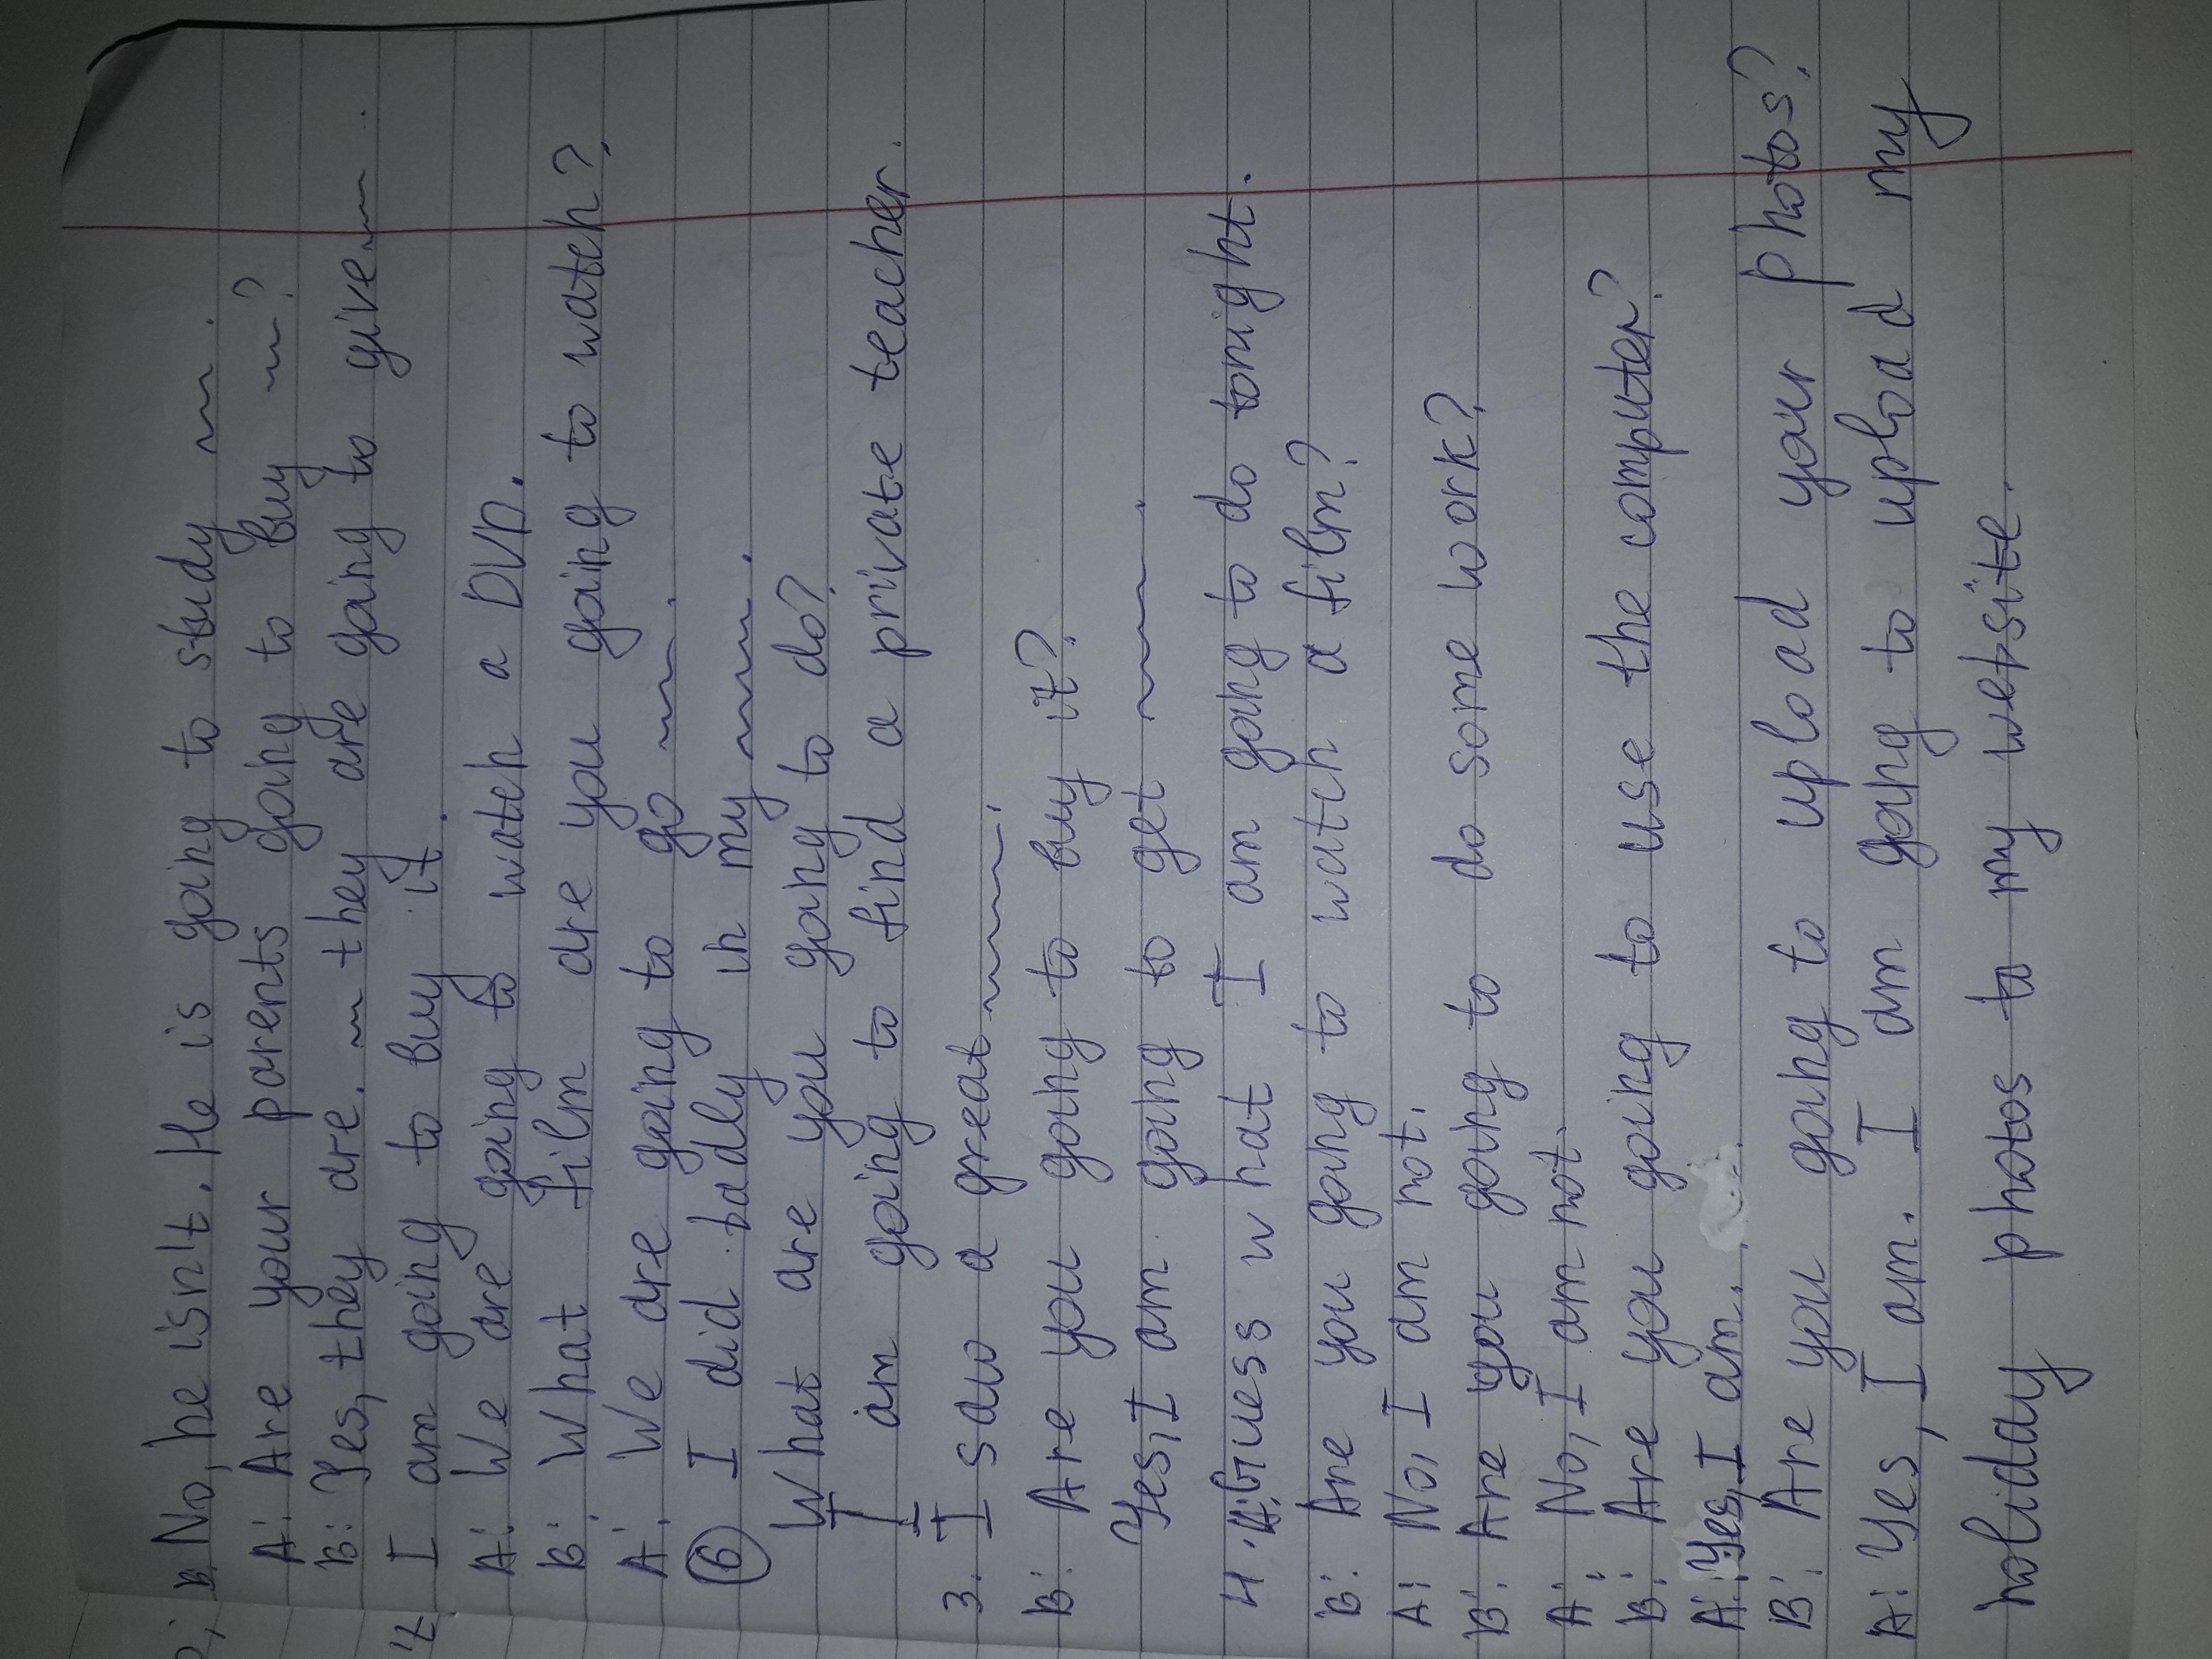 B. No, he isn't. He is going to study
A: Are your parents going to buy ?
B: Yes, they are. they are going to give
I am going to buy it.
A: We are going to watch a DVD.
B: What film are you going to watch?
A: We are going to go
6 I did badly in my
What are you going to do?
I am going to find a private teacher.
3. I saw a great
B: Are you going to buy it?
Yes, I am going to get
4. A: Guess what I am going to do tonight.
B: Are you going to watch a film?
A: No, I am not.
B: Are you going to do some work?
A: No, I am not.
B: Are you going to use the computer?
A: Yes, I am.
B: Are you going to upload your photos?
A: Yes, I am. I am going to upload my
holiday photos to my website.